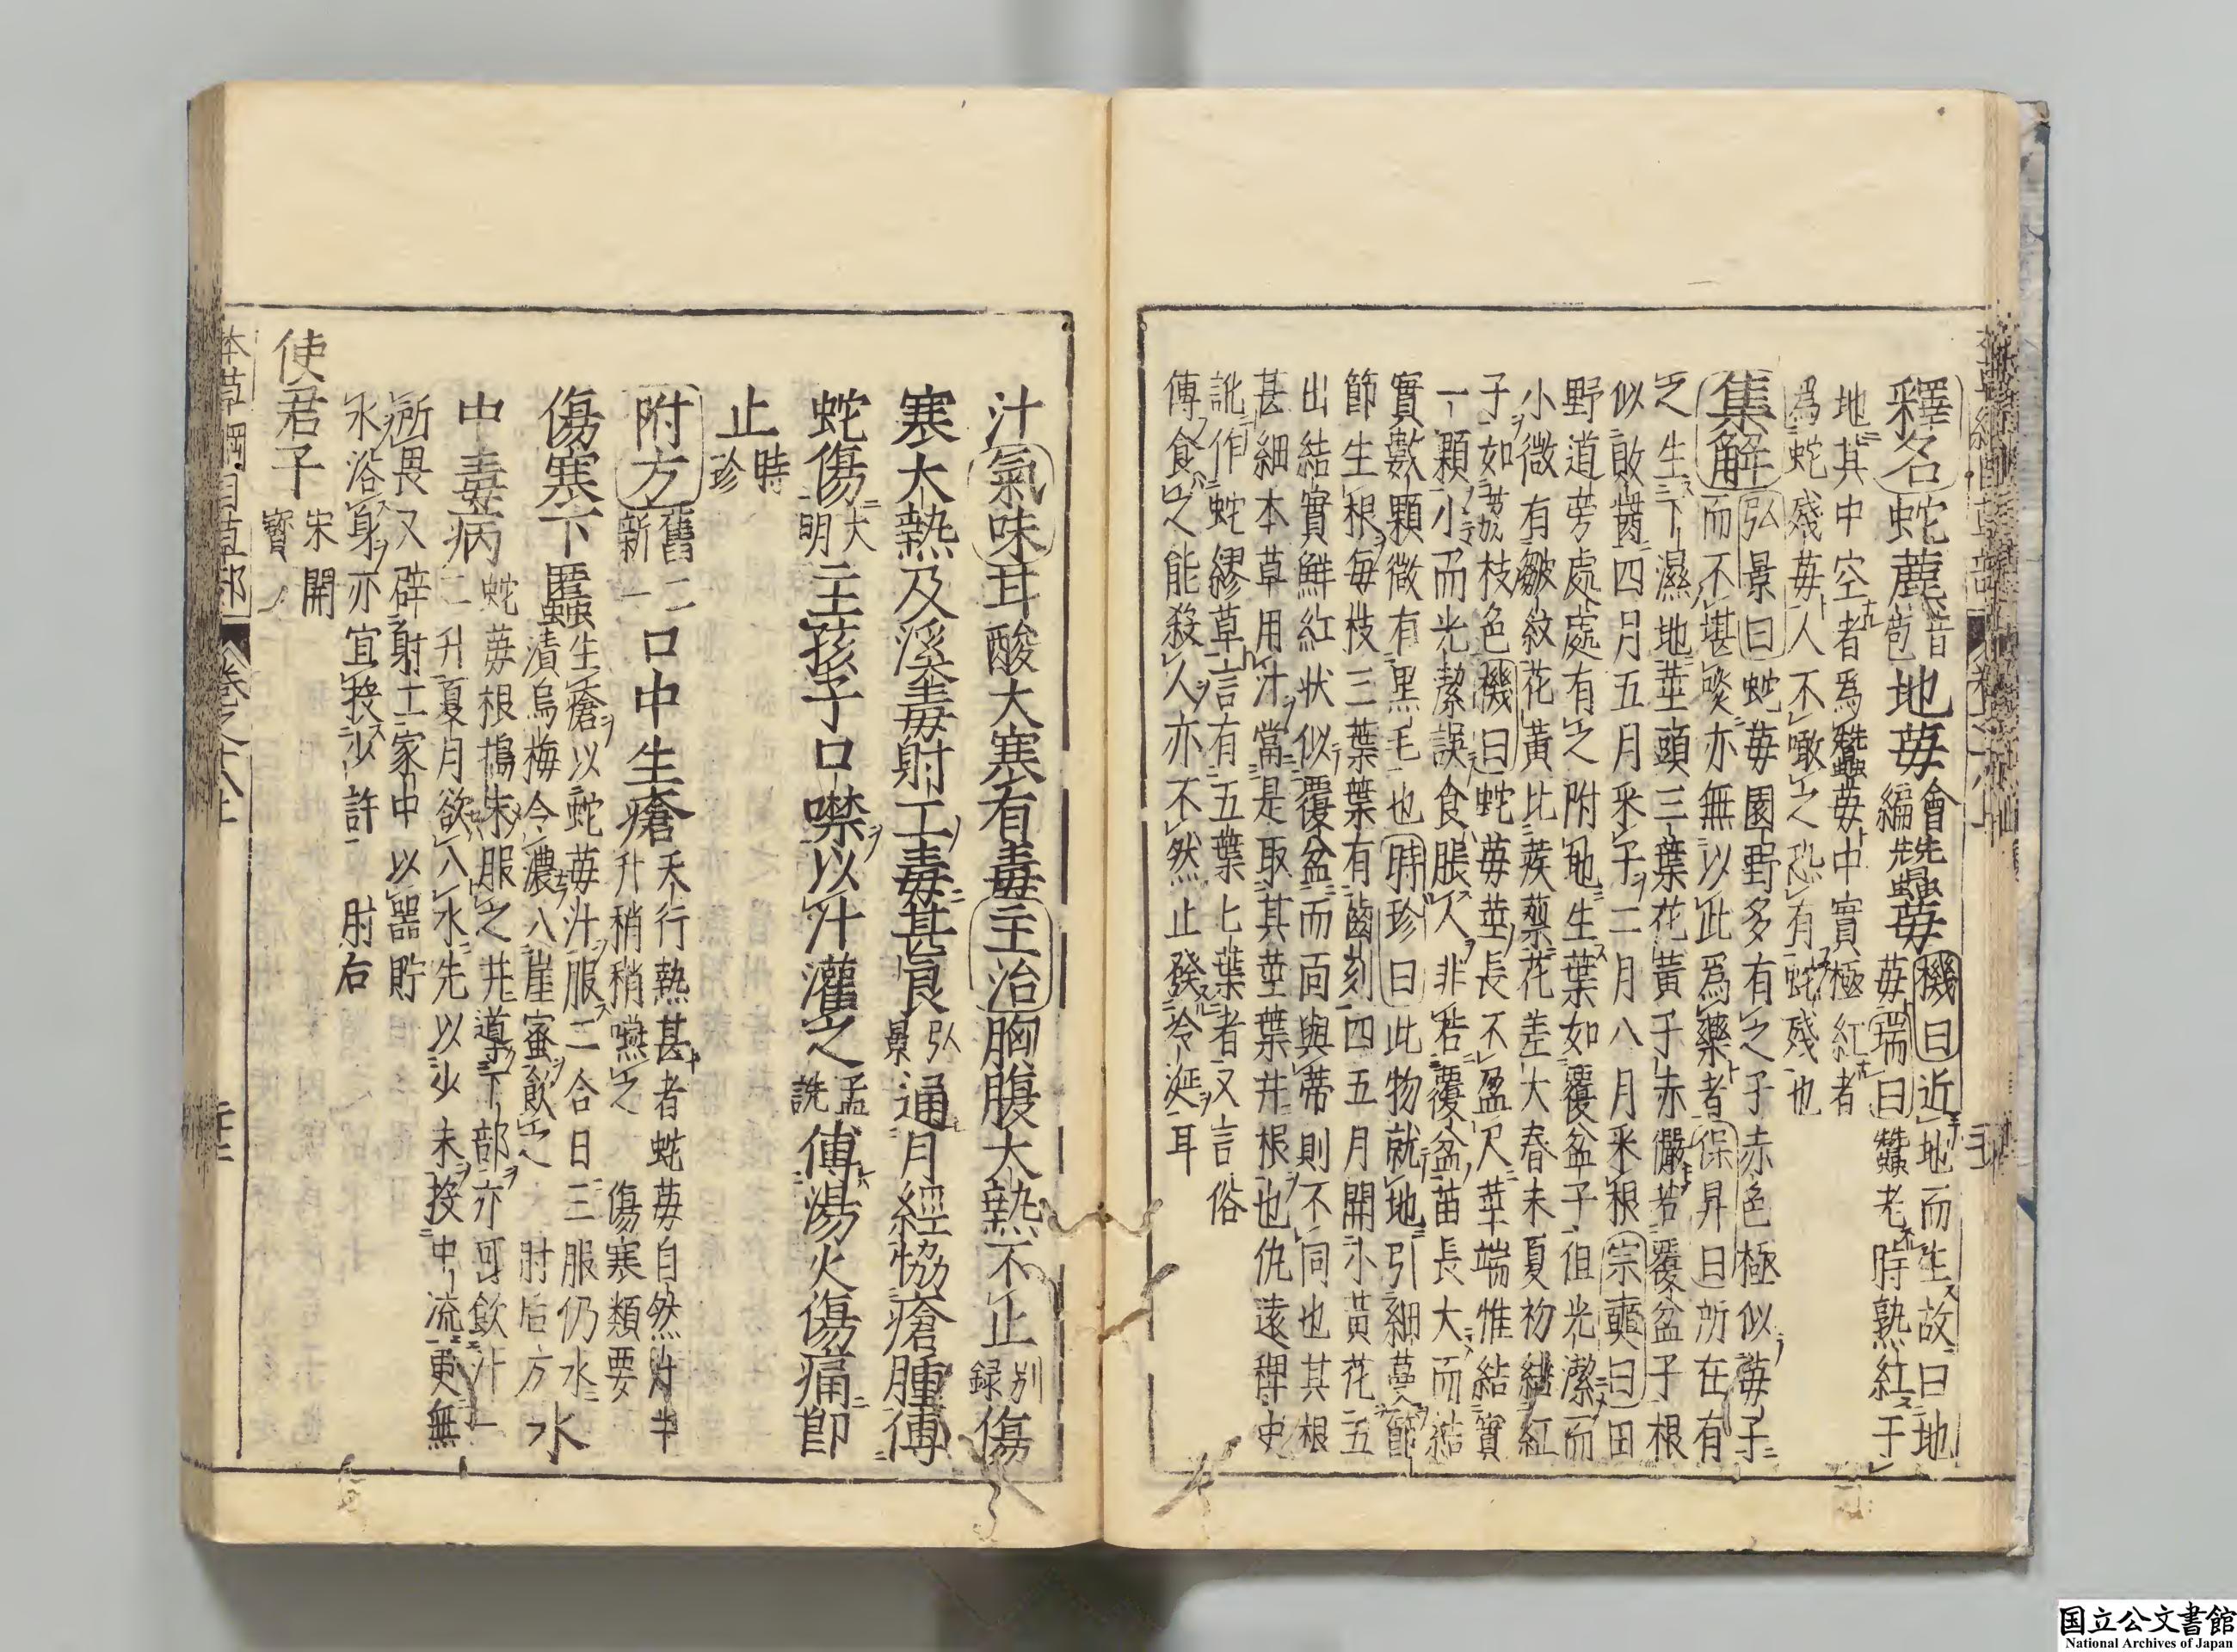 釋名蛇藨音苞地苺會編蠶苺機曰近地而生故曰地
苺瑞曰蠶老時熟紅于
地其中空者爲蠶苺中實極紅者
爲蛇殘苺人不噉之恐有蛇殘也
集解弘景曰蛇苺園野多有之子赤色極似苺子
而不堪啖亦無以此爲藥者保昇曰所在有
之生下濕地莖頭三葉花黃子赤儼若覆盆子根
似敗醬四月五月采子二月八月采根宗奭曰田
野道旁處處有之附地生葉如覆盆子但光潔而
小微有皺紋花黃比蒺藜花差大春末夏初結紅
子如荔枝色機曰蛇苺莖長不盈尺莖端惟結實
一顆小而光潔誤食脹人非若覆盆苗長大而結
實數顆微有黑毛也時珍曰此物就地引細蔓節
節生根每枝三葉葉有齒刻四五月開小黃花五
出結實鮮紅狀似覆盆而面與蒂則不同也其根
甚細本草用汁當是取其莖葉并根也仇遠稗史
訛作蛇繆草言有五葉七葉者又言俗
傳食之能殺人亦不然止發冷涎耳
汁氣味甘酸大寒有毒主治胸腹大熱不止別録傷
寒大熱及溪毒射工毒甚良弘景通月經熁瘡腫傅
蛇傷大明主孩子口噤以汁灌之孟詵傅湯火傷痛即
止時珍
附方舊二新一口中生瘡天行熱甚者蛇苺自然汁半
升稍稍嚥之　傷寒類要
傷寒下䘌生瘡以蛇苺汁服二合日三服仍水
漬烏梅令濃入崖蜜飲之　肘后方水
中毒病蛇苺根搗末服之并導下部亦可飲汁一
二升夏月欲入水先以少末投中流更無
所畏又辟射工家中以器貯
水浴身亦宜投少許　肘右
使君子宋開寶
本草綱目草部　卷之十八上